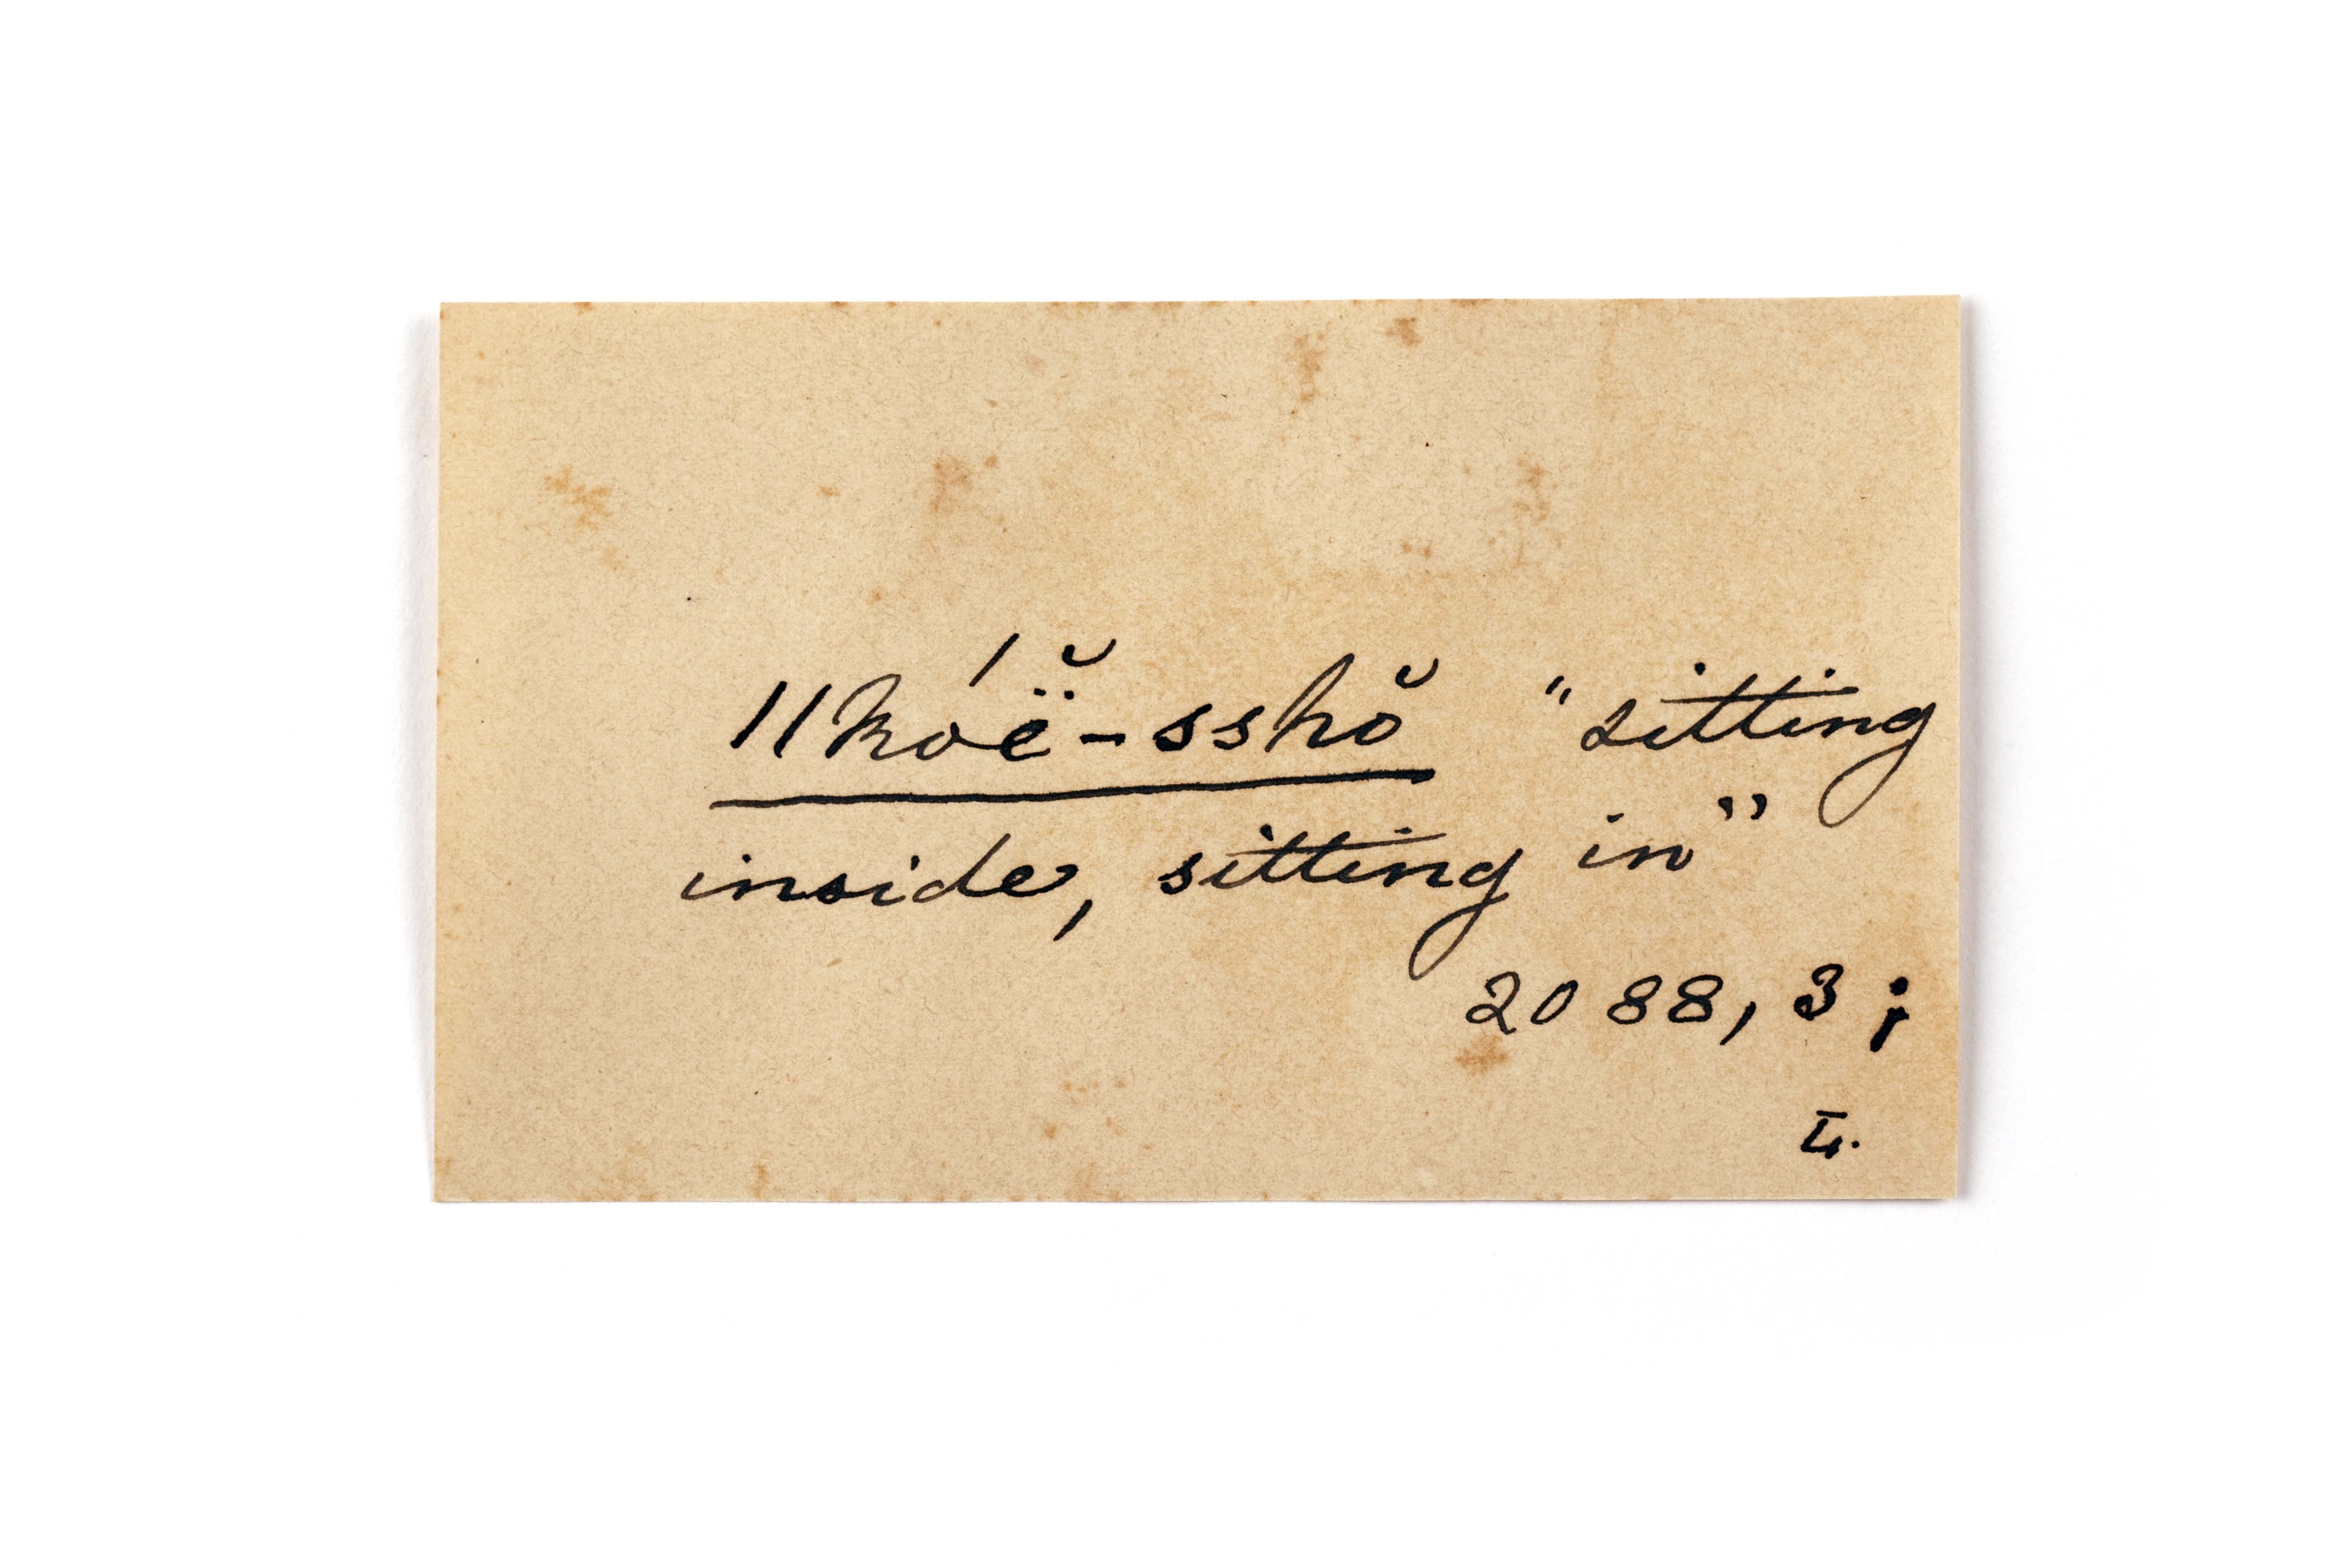 ǁkóë̆-sshŏ "sitting
inside, sitting in"
2088, 3;
L.